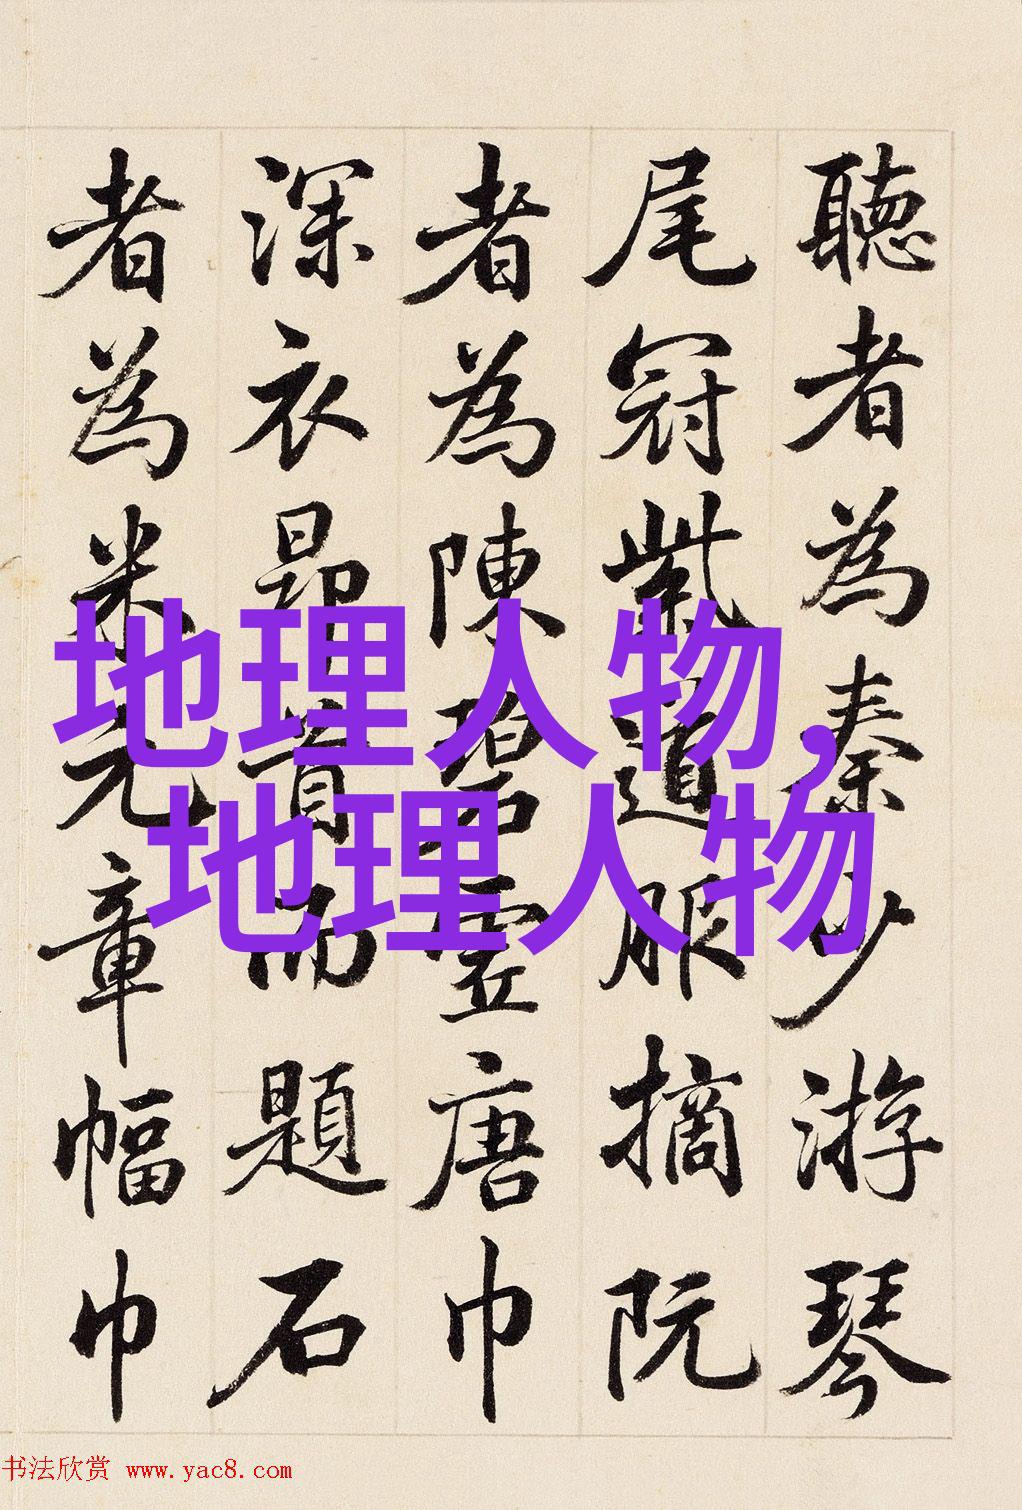 聽者為秦少游琴
尾冠紫道服摘阮
者為陳碧虛唐巾
深衣昂首而題石
者為米元章幅巾
地理人物,
地理人物
书法欣赏 www.yac8.com